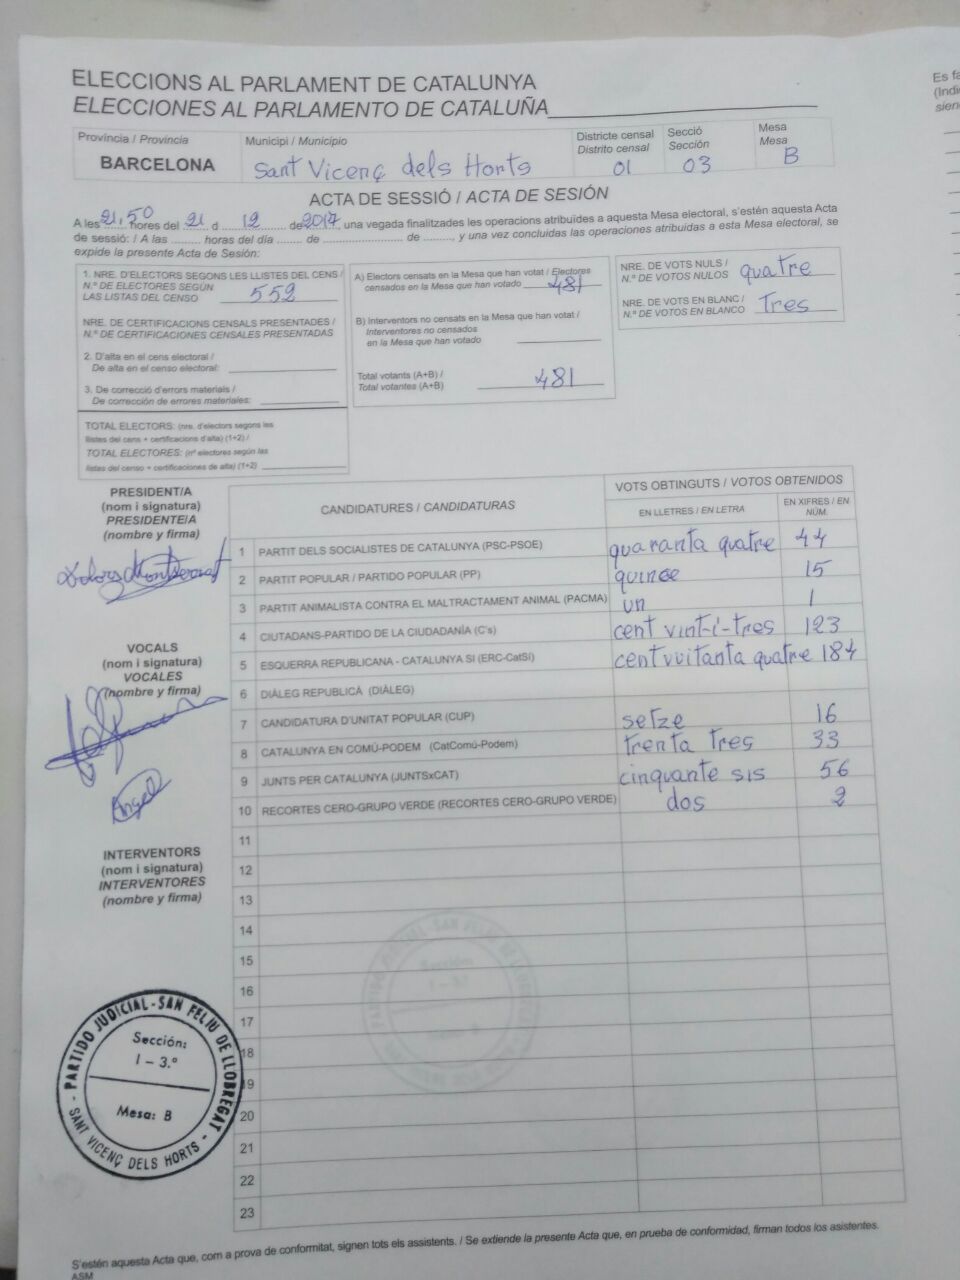 ELECCIONS AL PARLAMENT DE CATALUNYA
ELECCIONES AL PARLAMENTO DE CATALUÑA
Província / Provincia
BARCELONA
Municipi / Municipio
Sant Vicenç dels Horts
Districte censal
Distrito censal
01
Secció
Sección
03
Mesa
Mesa
B
Es fa
(Indi
sien
ACTA DE SESSIÓ / ACTA DE SESIÓN
A les 21,50 hores del 21 d 12 de 2017, una vegada finalitzades les operacions atribuïdes a aquesta Mesa electoral, s'estén aquesta Acta
de sessió: / A las ......... horas del día ....... de ..................... de ........, y una vez concluidas las operaciones atribuidas a esta Mesa electoral, se
expide la presente Acta de Sesión:
1. NRE. D'ELECTORS SEGONS LES LLISTES DEL CENS /
N.º DE ELECTORES SEGÚN
LAS LISTAS DEL CENSO 552
NRE. DE CERTIFICACIONS CENSALS PRESENTADES /
N.º DE CERTIFICACIONES CENSALES PRESENTADAS
2. D'alta en el cens electoral /
De alta en el censo electoral:
3. De correcció d'errors materials /
De corrección de errores materiales:
TOTAL ELECTORS: (nre. d'electors segons les
llistes del cens + certificacions d'alta) (1+2) /
TOTAL ELECTORES: (nº electores según las
listas del censo + certificaciones de alta) (1+2)
A) Electors censats en la Mesa que han votat / Electores
censados en la Mesa que han votado 481
B) Interventors no censats en la Mesa que han votat /
Interventores no censados
en la Mesa que han votado
Total votants (A+B) /
Total votantes (A+B) 481
NRE. DE VOTS NULS /
N.º DE VOTOS NULOS quatre
NRE. DE VOTS EN BLANC /
N.º DE VOTOS EN BLANCO Tres
PRESIDENT/A
(nom i signatura)
PRESIDENTE/A
(nombre y firma)
Dolors Montserrat
VOCALS
(nom i signatura)
VOCALES
(nombre y firma)
Àngel
INTERVENTORS
(nom i signatura)
INTERVENTORES
(nombre y firma)
CANDIDATURES / CANDIDATURAS
VOTS OBTINGUTS / VOTOS OBTENIDOS
EN LLETRES / EN LETRA
EN XIFRES / EN NÚM.
1 PARTIT DELS SOCIALISTES DE CATALUNYA (PSC-PSOE) quaranta quatre 44
2 PARTIT POPULAR / PARTIDO POPULAR (PP) quinze 15
3 PARTIT ANIMALISTA CONTRA EL MALTRACTAMENT ANIMAL (PACMA) un 1
4 CIUTADANS-PARTIDO DE LA CIUDADANÍA (C's) cent vint-i-tres 123
5 ESQUERRA REPUBLICANA - CATALUNYA SÍ (ERC-CatSí) cent vuitanta quatre 184
6 DIÀLEG REPUBLICÀ (DIÀLEG)
7 CANDIDATURA D'UNITAT POPULAR (CUP) setze 16
8 CATALUNYA EN COMÚ-PODEM (CatComú-Podem) trenta tres 33
9 JUNTS PER CATALUNYA (JUNTSxCAT) cinquante sis 56
10 RECORTES CERO-GRUPO VERDE (RECORTES CERO-GRUPO VERDE) dos 2
11
12
13
14
15
16
17
18
19
20
21
22
23
PARTIDO JUDICIAL - SAN FELIU DE LLOBREGAT -
SANT VICENÇ DELS HORTS
Sección:
1 - 3.º
Mesa: B
S'estén aquesta Acta que, com a prova de conformitat, signen tots els assistents. / Se extiende la presente Acta que, en prueba de conformidad, firman todos los asistentes.
ASM